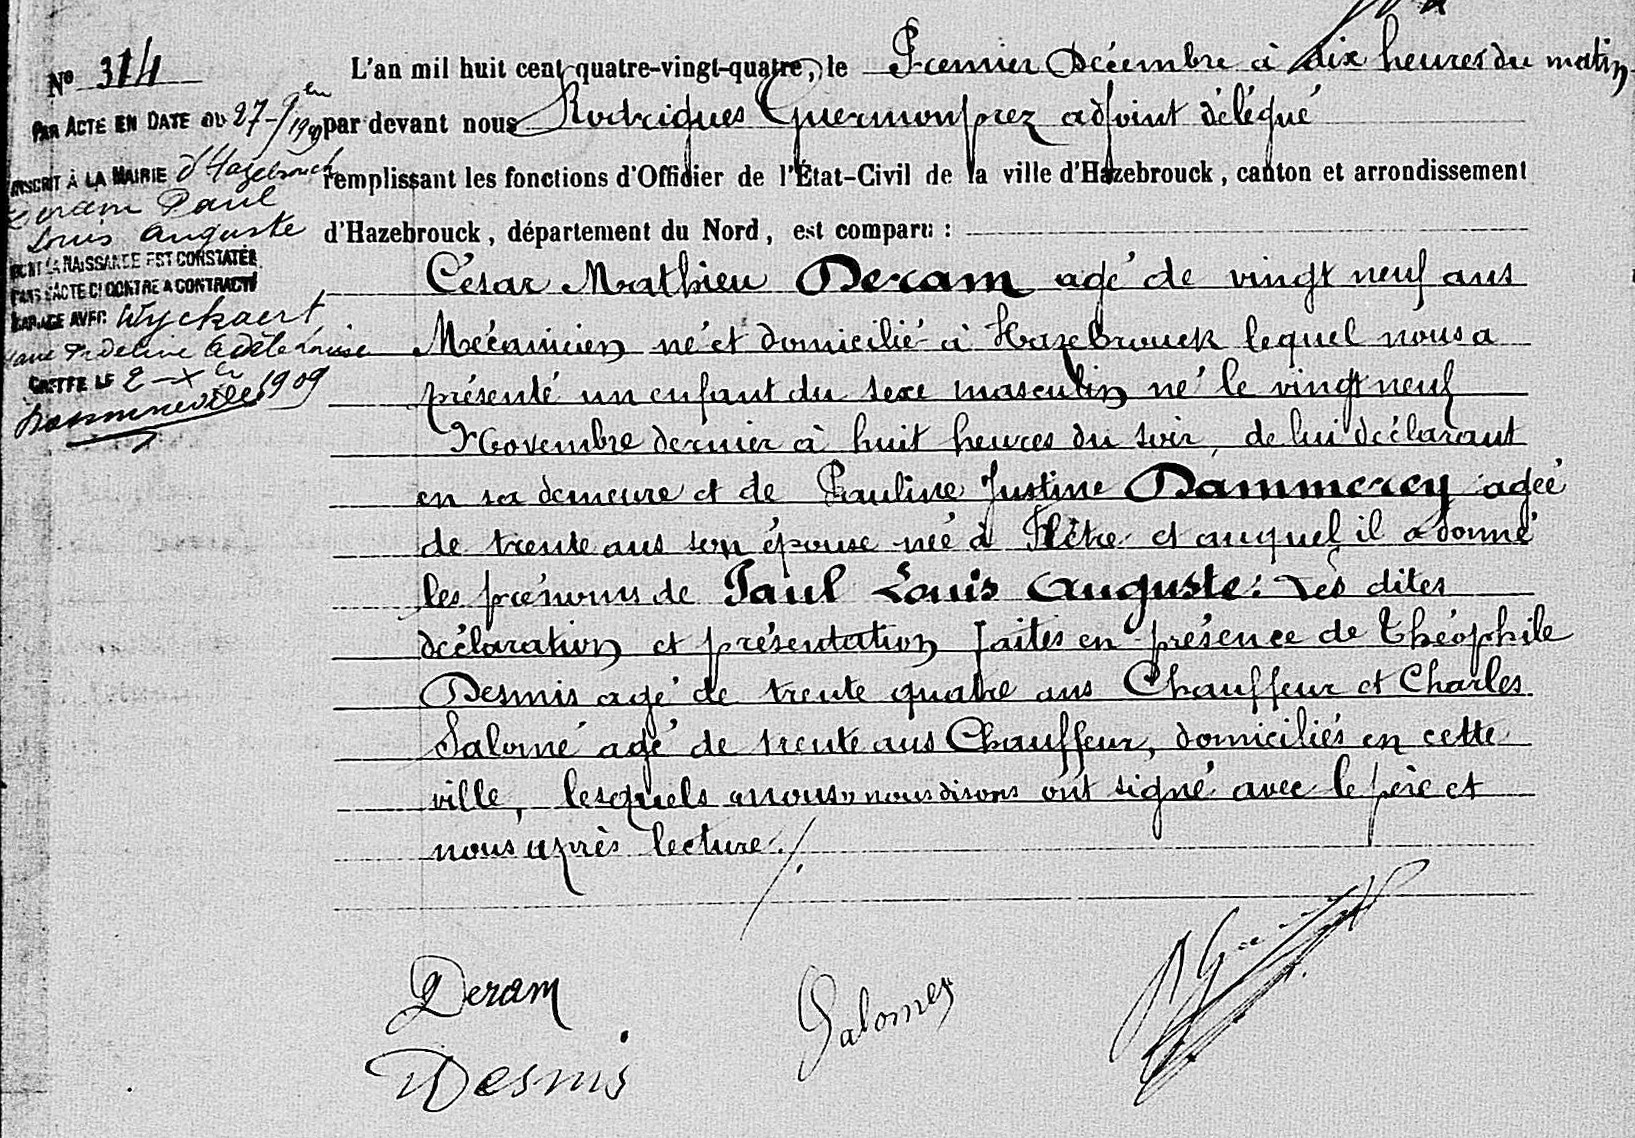 N° 314
PAR ACTE EN DATE DU 27-9bre 1909
INSCRIT À LA MAIRIE d'Hazebrouck
Deram Paul
Louis Auguste
DONT LA NAISSANCE EST CONSTATÉE
DANS L'ACTE CI CONTRE A CONTRACTÉ
MARIAGE AVEC Wyckaert
Adèle Louise
GREFFE LE 2-Xbre
1909
L'an mil huit cent quatre-vingt-quatre, le Premier Décembre à dix heures du matin
par devant nous Rodrigues Guermonprez adjoint délégué
remplissant les fonctions d'Officier de l'État-Civil de la ville d'Hazebrouck, canton et arrondissement
d'Hazebrouck, département du Nord, est comparu :
César Mathieu Deram agé de vingt neuf ans
Mécanicien né et domicilié à Hazebrouck lequel nous a
présenté un enfant du sexe masculin né le vingt neuf
Novembre dernier à huit heures du soir, de lui déclarant
en sa demeure et de Pauline Justine Dammerey agée
de trente ans son épouse née à Flêtre et auquel il a donné
les prénoms de Paul Louis Auguste. Les dites
déclaration et présentation faites en présence de Théophile
Desmis agé de trente quatre ans Chauffeur et Charles
Salomé agé de trente ans Chauffeur, domiciliés en cette
ville, lesquels "nous" nous disons ont signé avec le père et
nous après lecture ./.
Deram
Salomez
Desmis